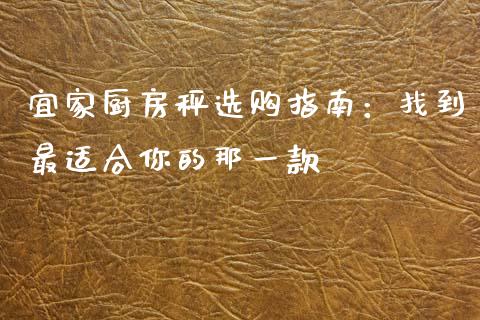 宜家厨房秤选购指南：找到
最适合你的那一款